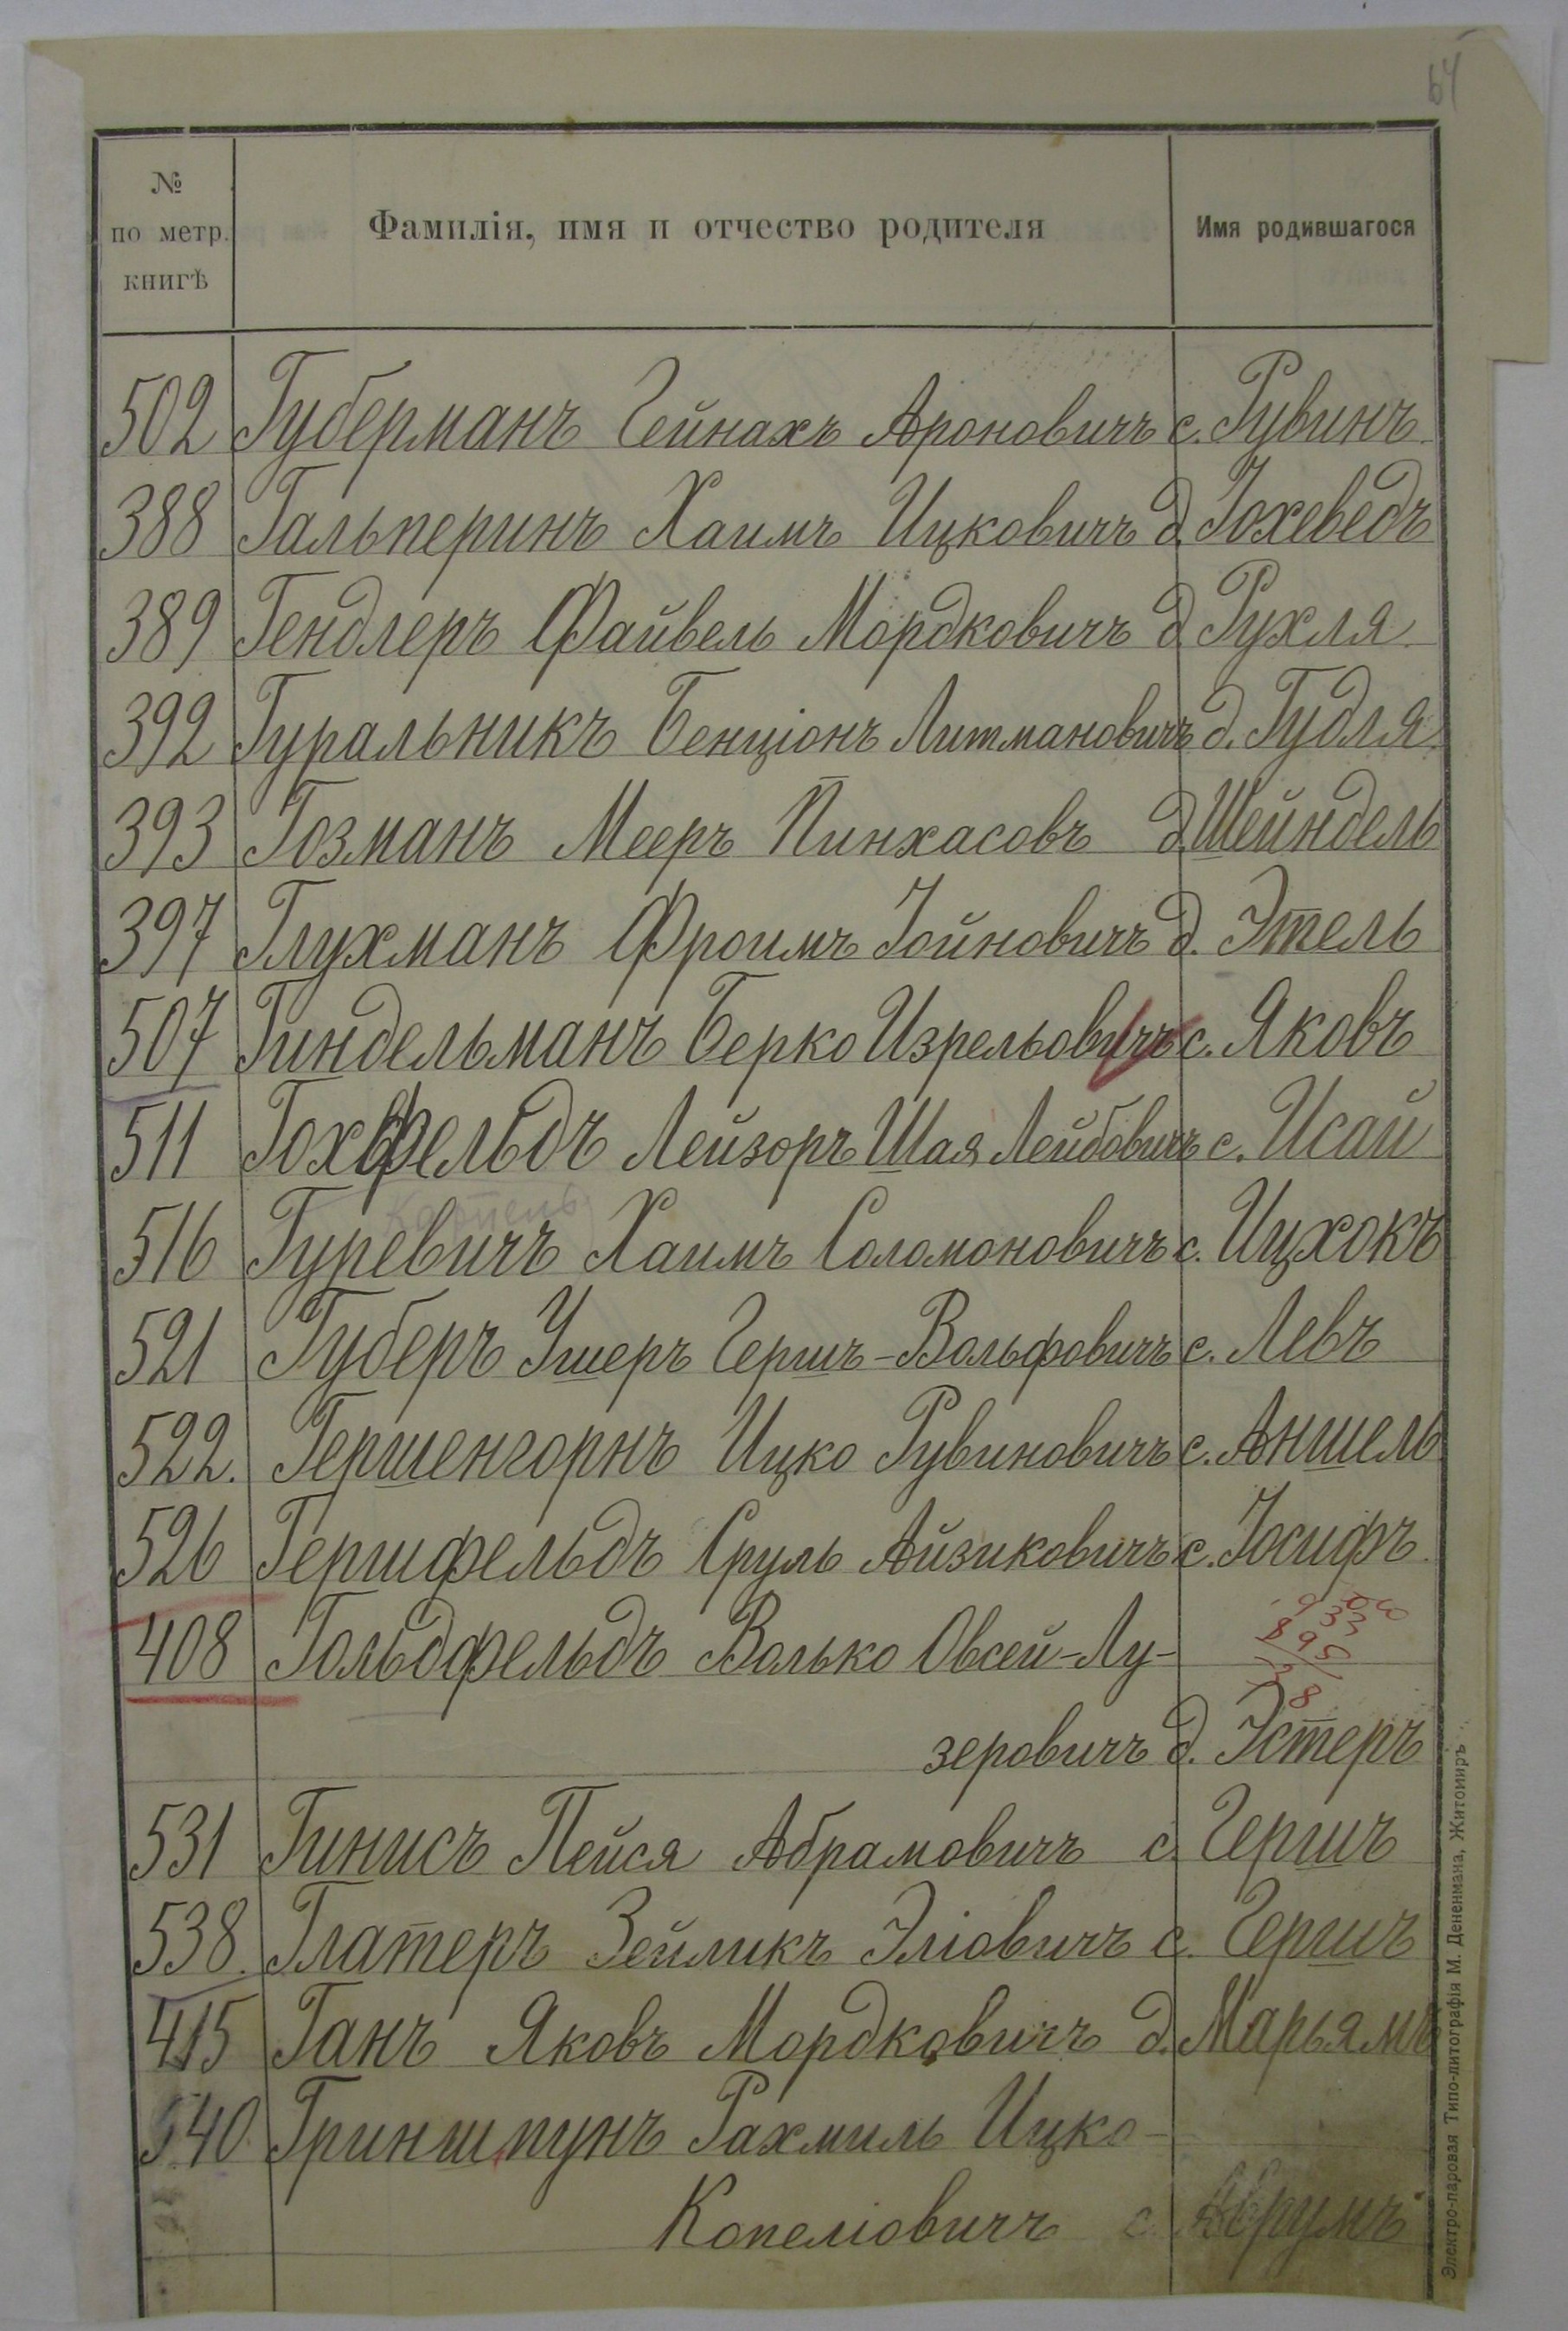 64
№ по метр. книгѣ Фамилія, имя и отчество родителя Имя родившагося
502 Губерманъ Гейнахъ Ароновичъ с. Рувинъ
388 Гальперинъ Хаимъ Ицковичъ д. Іохеведъ
389 Гендлеръ Файвель Мордковичъ д. Рухля
392 Гуральникъ Бенціонъ Литмановичъ д. Гудля
393 Гозманъ Мееръ Пинхасовъ д. Шейндель
397 Глухманъ Фроимъ Іойновичъ д. Этель
507 Гиндельманъ Берко Изрельовичъ с. Яковъ
511 Гохфельдъ Лейзоръ Шая Лейбовичъ с. Исай
516 Гуревичъ Хаимъ Соломоновичъ с. Ицхокъ
521 Губеръ Ушеръ Гершъ-Вольфовичъ с. Левъ
522. Гершенгорнъ Ицко Рувиновичъ с. Аншель
526 Гершфельдъ Сруль Айзиковичъ с. Іосифъ
408 Гольдфельдъ Волько Овсей-Лу-
зеровичъ д. Эстеръ
531 Гинисъ Пейся Абрамовичъ с. Гершъ
538. Глатеръ Зейликъ Эліовичъ с. Гершъ
415 Ганъ Яковъ Мордковичъ д. Марьямъ
540 Гриншпунъ Рахмиль Ицко-
Копеліовичъ с.
Электро-паровая Типо-литографія М. Дененмана, Житомиръ.